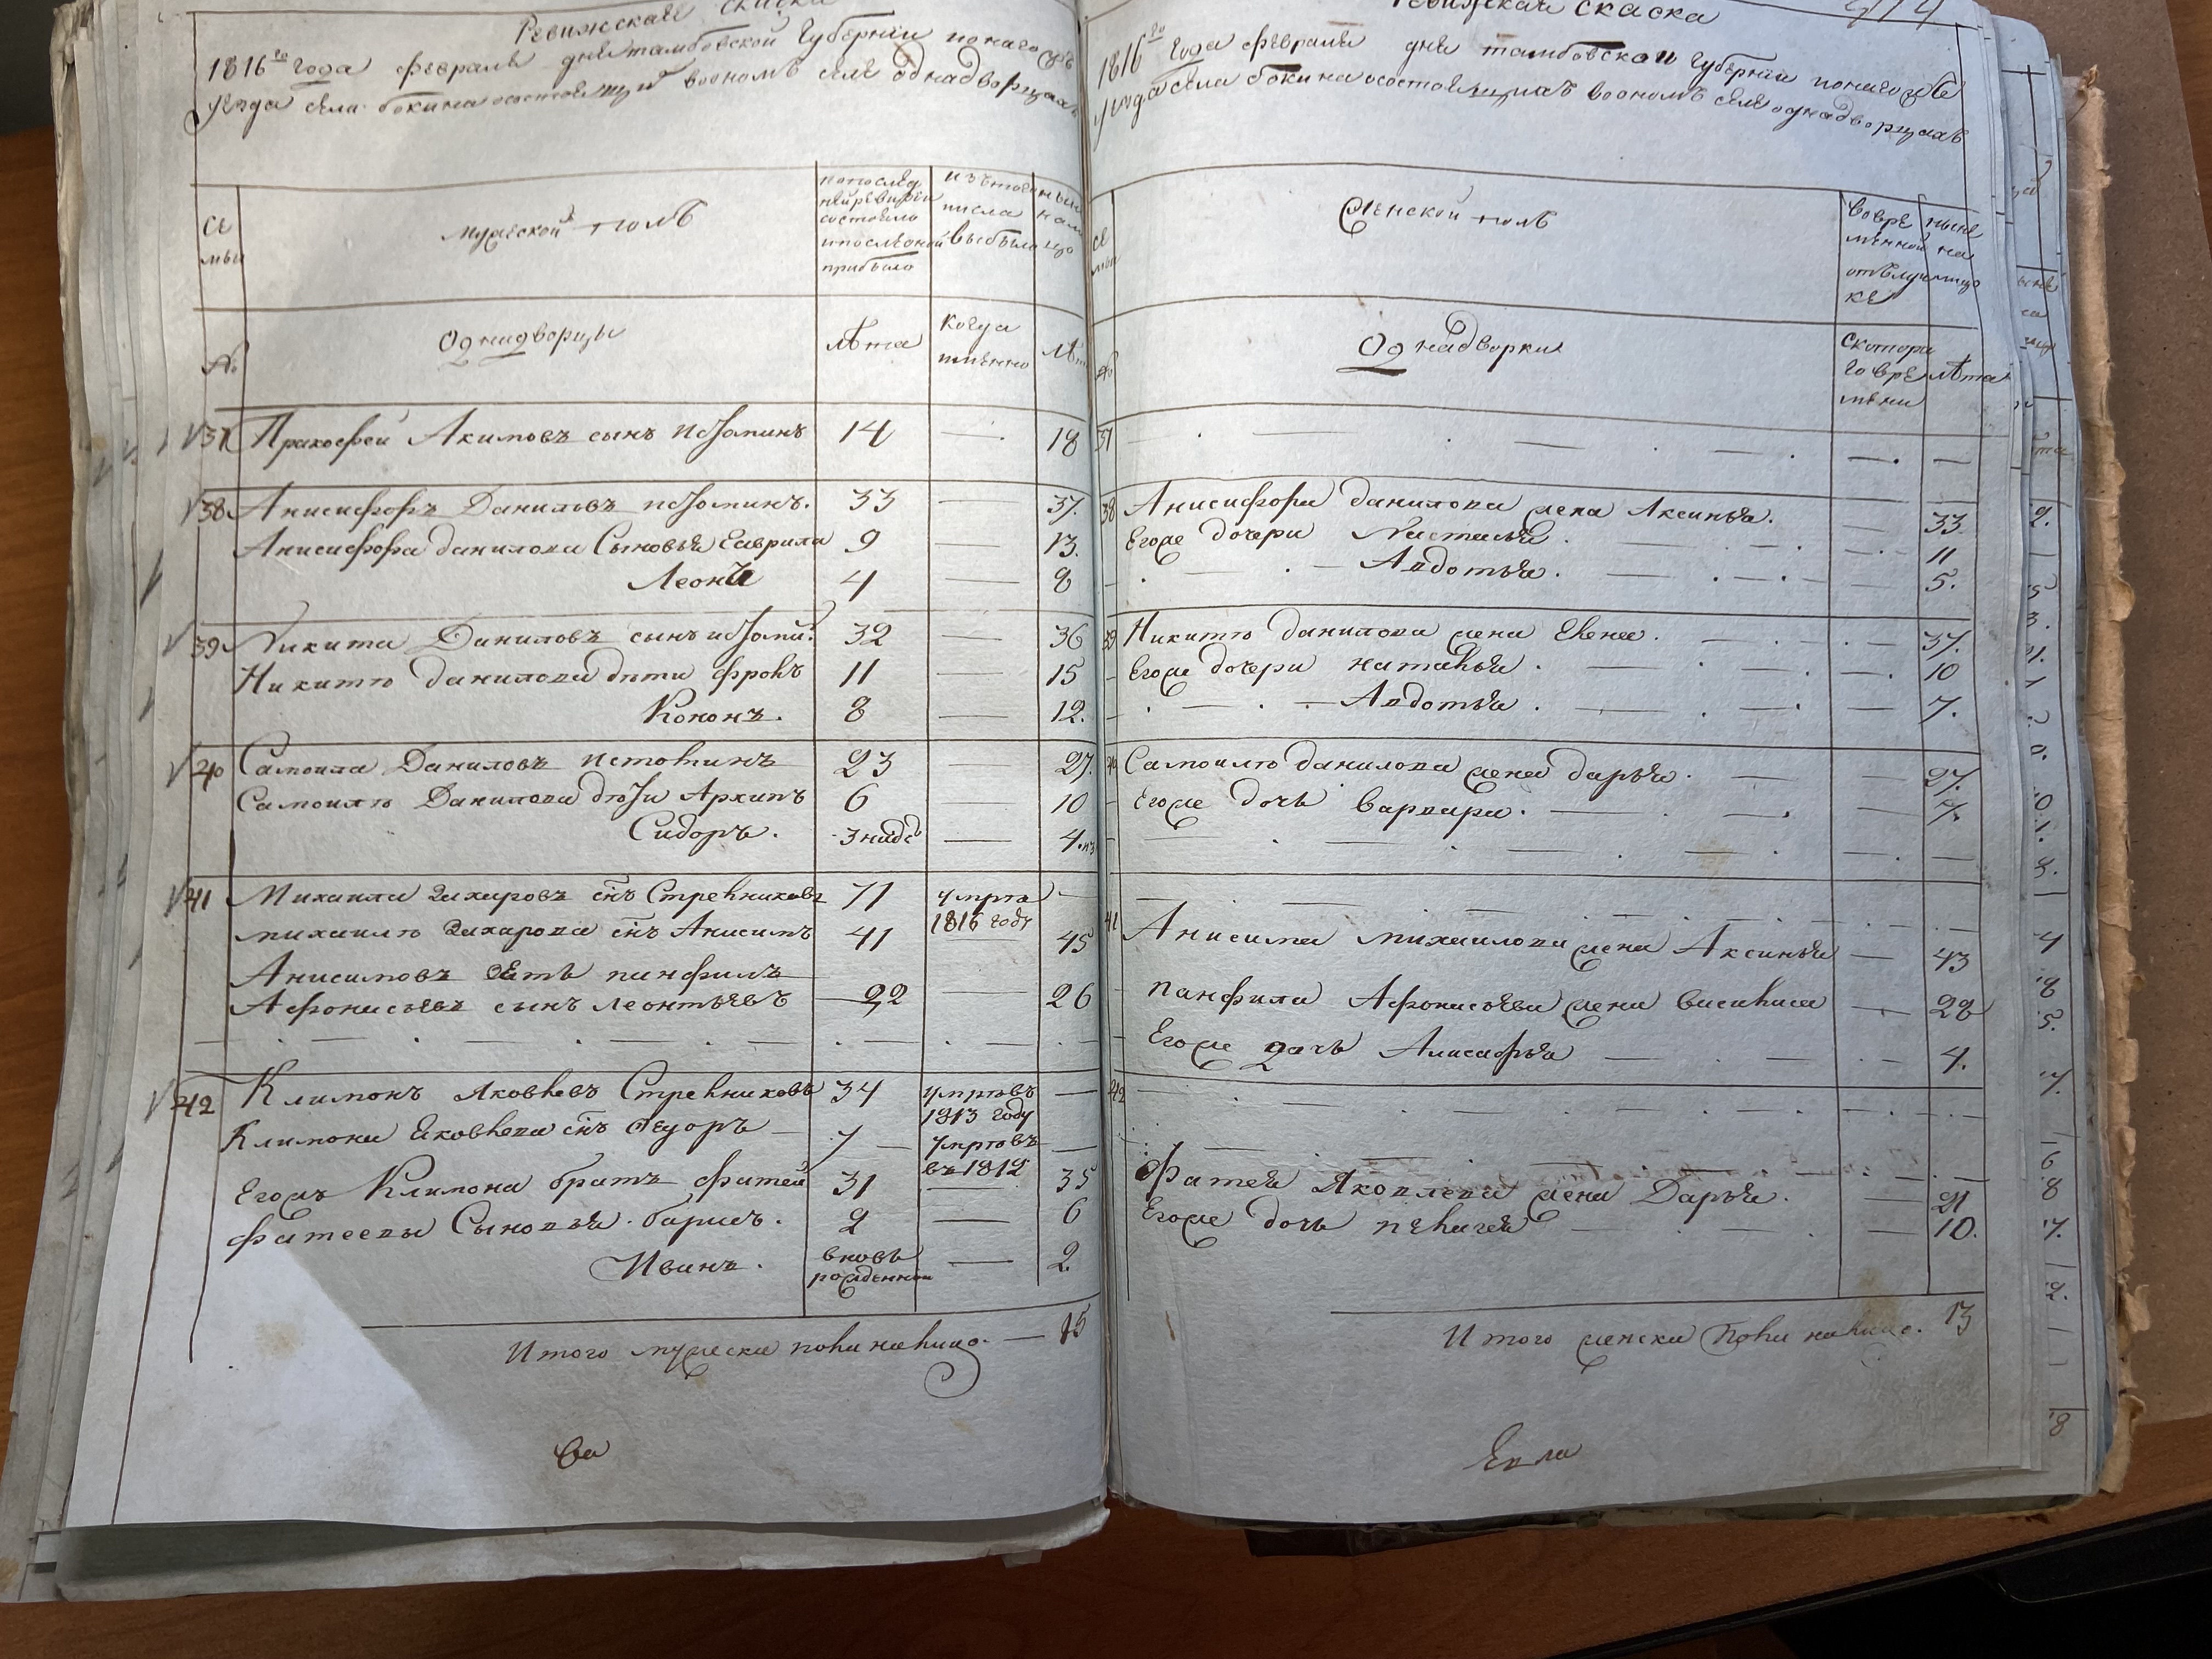 Ревижская скаска
1816го года февраля дня тамбовской губернии
уезда села бокина состоящий воономъ селе однадворцахъ
се
мьи
мужеской полъ
попослед
ней ревизеи
состояло
ипослеоной
прибыло
изътого
числа
выбыло
№
Однадворцы
лѣта
когда
имянно
37 Пракофей Акимовъ сынъ 14 — 18
38 Анисифоръ Даниловъ 33 — 37.
Анисифора данилова Сыновья Гаврила 9 — 13.
4 — 8
39 Никита Даниловъ сынъ 32 — 36
Никиты данилова дѣти фролъ 11 — 15
Кононъ. 8 — 12.
40 Самоила Даниловъ 23 — 27.
Самоилы Данилова Архипъ 6 — 10
Сидоръ. 3 нидѣ — 4.
41 Михаила Захаровъ снъ Стрелниковъ 71 умръ —
1816 году
михаилы Захарова снъ Анисимъ 41 — 45
Анисимовъ зять панфилъ
Афонисьевъ сынъ леонтьевъ 22 — 26
42 Климонъ Яковлевъ Стрелниковъ 34 умръвъ —
1813 году
Климона Яковлева снъ Федоръ — 7 — умръвъ —
въ 1812
Егожъ Климона братъ фатей 31 — 35
фатеевы Сыновья. барисъ. 2 — 6
Иванъ. вновь — 2.
рожденной
Итого мужеска пола налицо. — 15
Ревижская скаска
1816го года февраля дня тамбовской губернии
уезда села бокина состоящихъ воономъ селе однадворцахъ
се
мьи
Женской полъ
вовре
мянной
отблучи
ке
ныне
на
лицо
№
Однадворки
скотора
го вре
мени
лѣта
37 — — —
38 Анисифора данилова жена Аксинья. — 33
Егоже дочери Настасья. — 11
Авдотья. — 5.
39 Никиты данилова жена — 37.
Егоже дочери наталья. — 10
Авдотья. — 7.
40 Самоилы данилова жена дарья. — 27.
Егоже дочь варвара. — 7.
41 Анисима михаилова жена Аксинья — 43
панфила Афонисьева жена василиса — 28
Егоже дочь — 4.
42 — — —
Фатея Яковлева жена Дарья. — 21
Егоже дочь пелагея — 10.
Итого женска пола налицо. 13